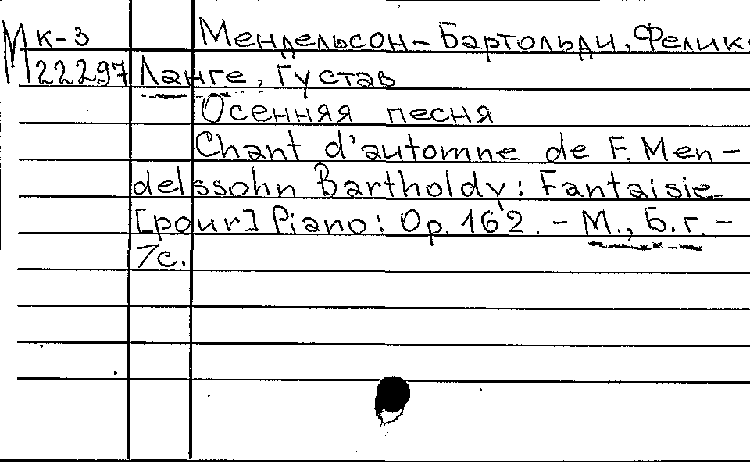 М К-3 Мендельсон-Бартольди, Феликс
22297 Ланге, Густав
Осенняя песня
Chant d'automne de F. Men-
delssohn Bartholdy: Fantaisie
[pour] Piano: Op. 162. - М., Б.г. -
7с.